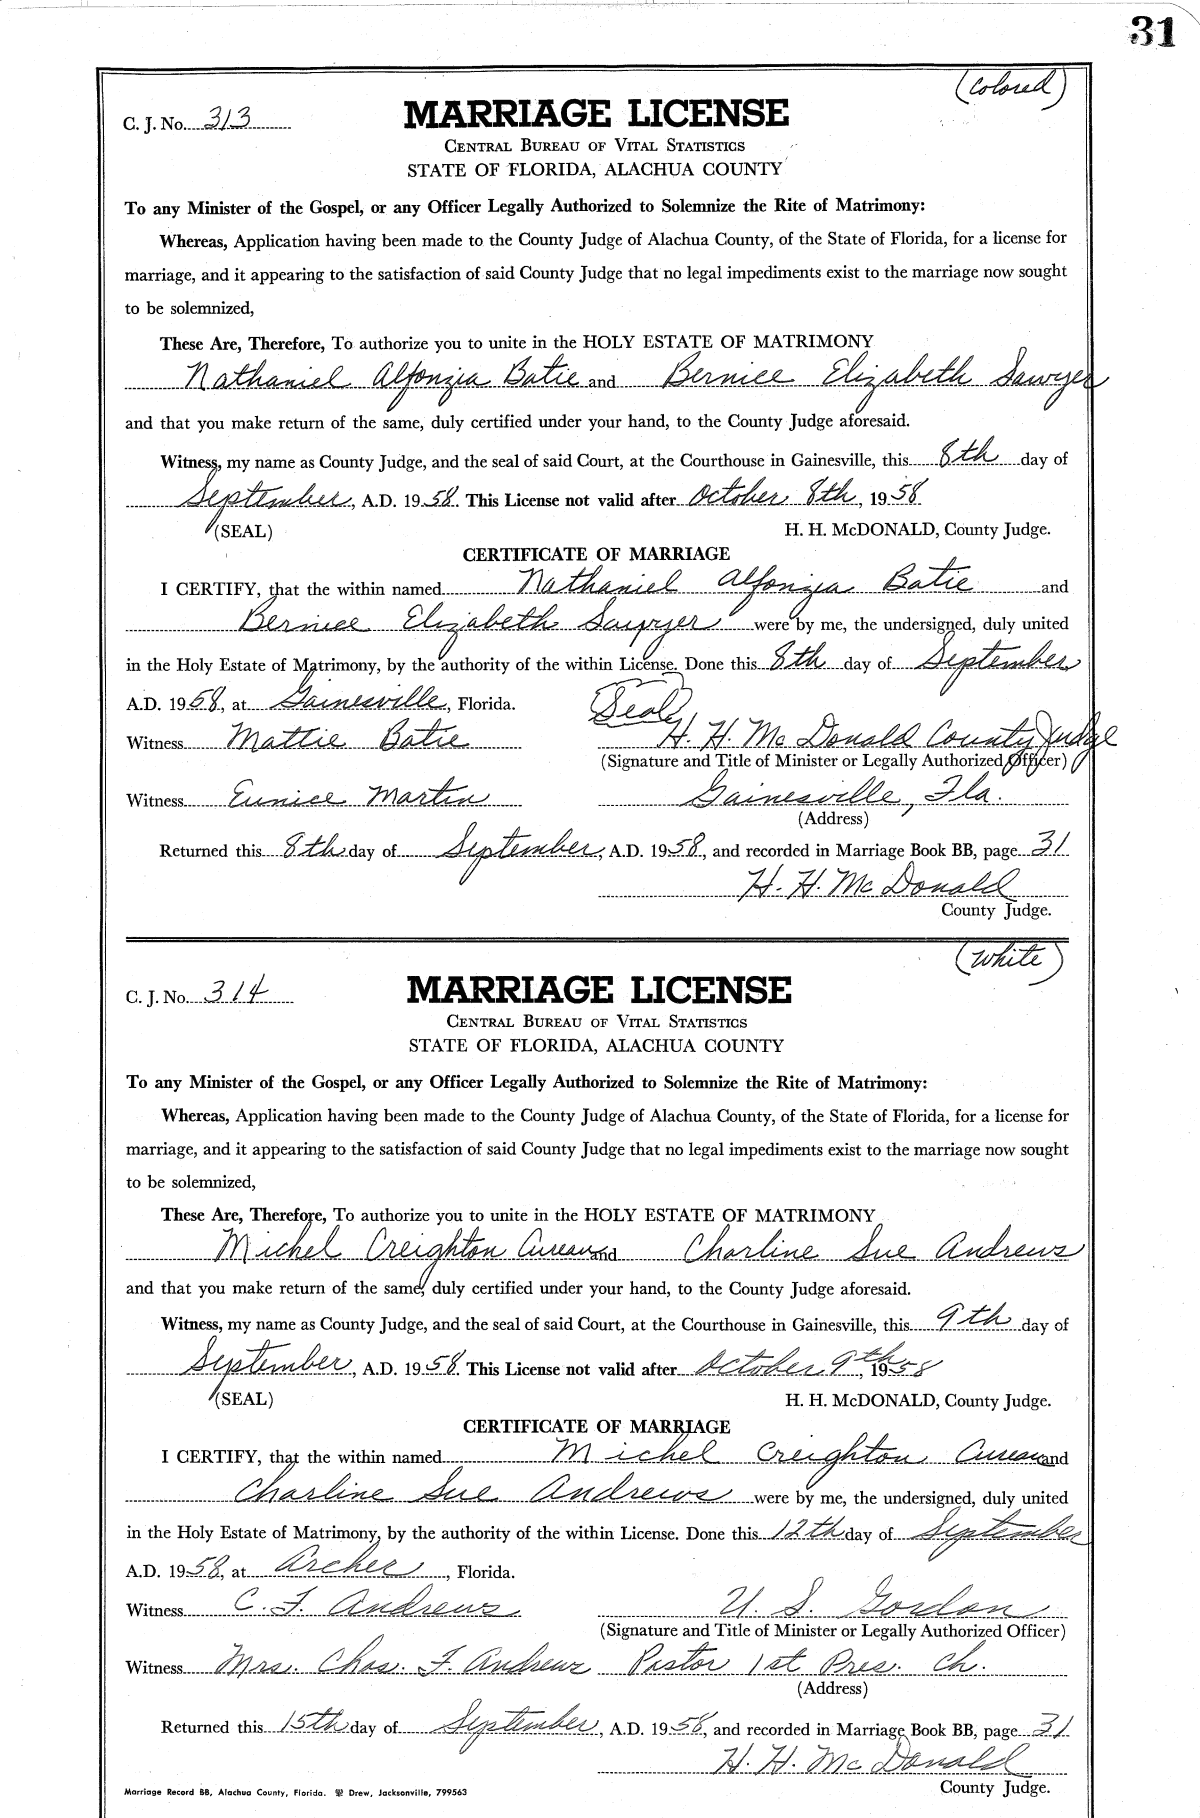 31
(Colored)
C. J. No. 313
MARRIAGE LICENSE
CENTRAL BUREAU OF VITAL STATISTICS
STATE OF FLORIDA, ALACHUA COUNTY
To any Minister of the Gospel, or any Officer Legally Authorized to Solemnize the Rite of Matrimony:
Whereas, Application having been made to the County Judge of Alachua County, of the State of Florida, for a license for
marriage, and it appearing to the satisfaction of said County Judge that no legal impediments exist to the marriage now sought
to be solemnized,
These Are, Therefore, To authorize you to unite in the HOLY ESTATE OF MATRIMONY
Nathaniel Alfonzia Batie and Bernice Elizabeth Sawyer
and that you make return of the same, duly certified under your hand, to the County Judge aforesaid.
Witness, my name as County Judge, and the seal of said Court, at the Courthouse in Gainesville, this 8th day of
September, A.D. 1958. This License not valid after October 8th, 1958
(SEAL) H. H. McDONALD, County Judge.
CERTIFICATE OF MARRIAGE
I CERTIFY, that the within named Nathaniel Alfonzia Batie and
Bernice Elizabeth Sawyer were by me, the undersigned, duly united
in the Holy Estate of Matrimony, by the authority of the within License. Done this 8th day of September
A.D. 1958, at Gainesville, Florida. (Seal)
Witness Mattie Batie H. H. Mc Donald County Judge
(Signature and Title of Minister or Legally Authorized Officer)
Witness Eunice Martin Gainesville, Fla.
(Address)
Returned this 8th day of September, A.D. 1958, and recorded in Marriage Book BB, page 31
H. H. Mc Donald
County Judge.
(White)
C. J. No. 314
MARRIAGE LICENSE
CENTRAL BUREAU OF VITAL STATISTICS
STATE OF FLORIDA, ALACHUA COUNTY
To any Minister of the Gospel, or any Officer Legally Authorized to Solemnize the Rite of Matrimony:
Whereas, Application having been made to the County Judge of Alachua County, of the State of Florida, for a license for
marriage, and it appearing to the satisfaction of said County Judge that no legal impediments exist to the marriage now sought
to be solemnized,
These Are, Therefore, To authorize you to unite in the HOLY ESTATE OF MATRIMONY
Michel Creighton and Charline Sue Andrews
and that you make return of the same, duly certified under your hand, to the County Judge aforesaid.
Witness, my name as County Judge, and the seal of said Court, at the Courthouse in Gainesville, this 9th day of
September, A.D. 1958. This License not valid after October 9th, 1958
(SEAL) H. H. McDONALD, County Judge.
CERTIFICATE OF MARRIAGE
I CERTIFY, that the within named Michel Creighton and
Charline Sue Andrews were by me, the undersigned, duly united
in the Holy Estate of Matrimony, by the authority of the within License. Done this 12th day of September
A.D. 1958, at Archer, Florida.
Witness C. F. Andrews U. S. Gordon
(Signature and Title of Minister or Legally Authorized Officer)
Witness Mrs. Chas. F. Andrews Pastor 1st Pres. Ch.
(Address)
Returned this 15th day of September, A.D. 1958, and recorded in Marriage Book BB, page 31
H. H. Mc Donald
County Judge.
Marriage Record BB, Alachua County, Florida. Drew, Jacksonville, 799563